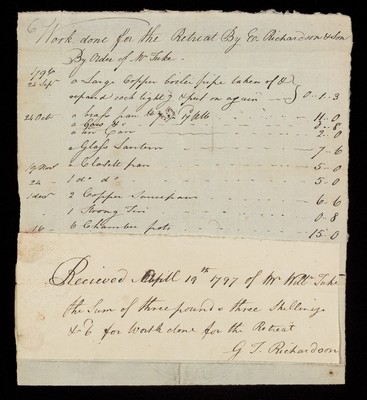 Work done for the Retreat By Richardson & Son
By Order of Wm Tuke
1796
24 Sepr a Large Copper Boiler pipe taken of &
repaird cock light & put on again 0-1-3
24 Oct a brass pan 11-0
a
a Tin Can 2-0
a Glass Lantern 7-6
19 Novr a Closett pan 5-0
24 1 do do 5-0
1 Decr 2 Copper Saucepans 6-6
1 Strong Tin 0-8
16 6 Chamber pots 15-0
Recieved Aprill 19th 1797 of Mr Willm Tuke
the Sum of three pound & three Shillings
& for Work done for the Retreat
G T Richardson